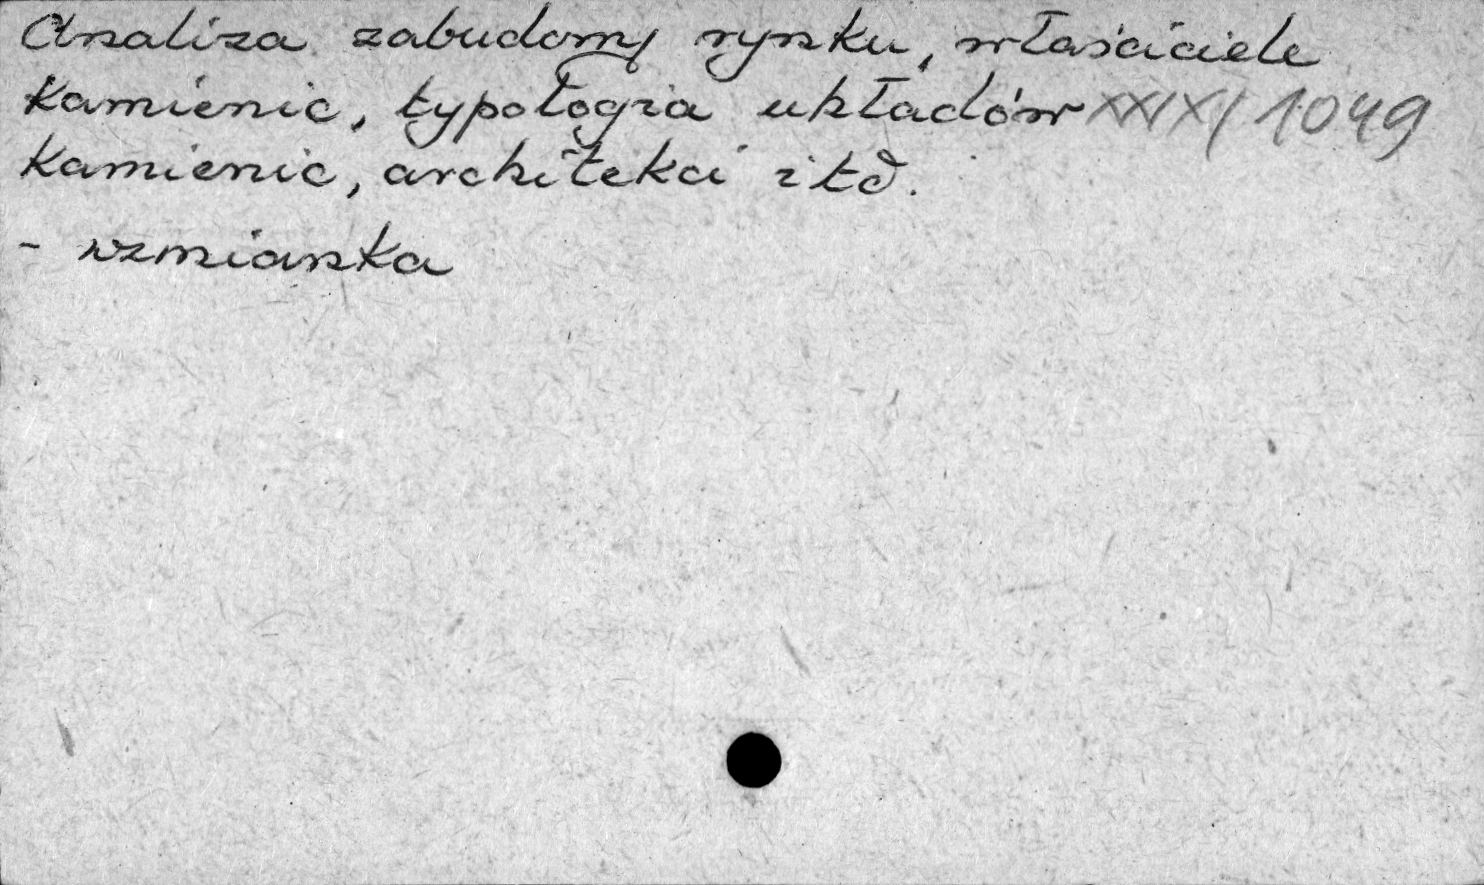 Analiza zabudowy rynku, właściciele
kamienic, typologia układów XXIX/1049
kamienic, architekci itd.
- wzmianka